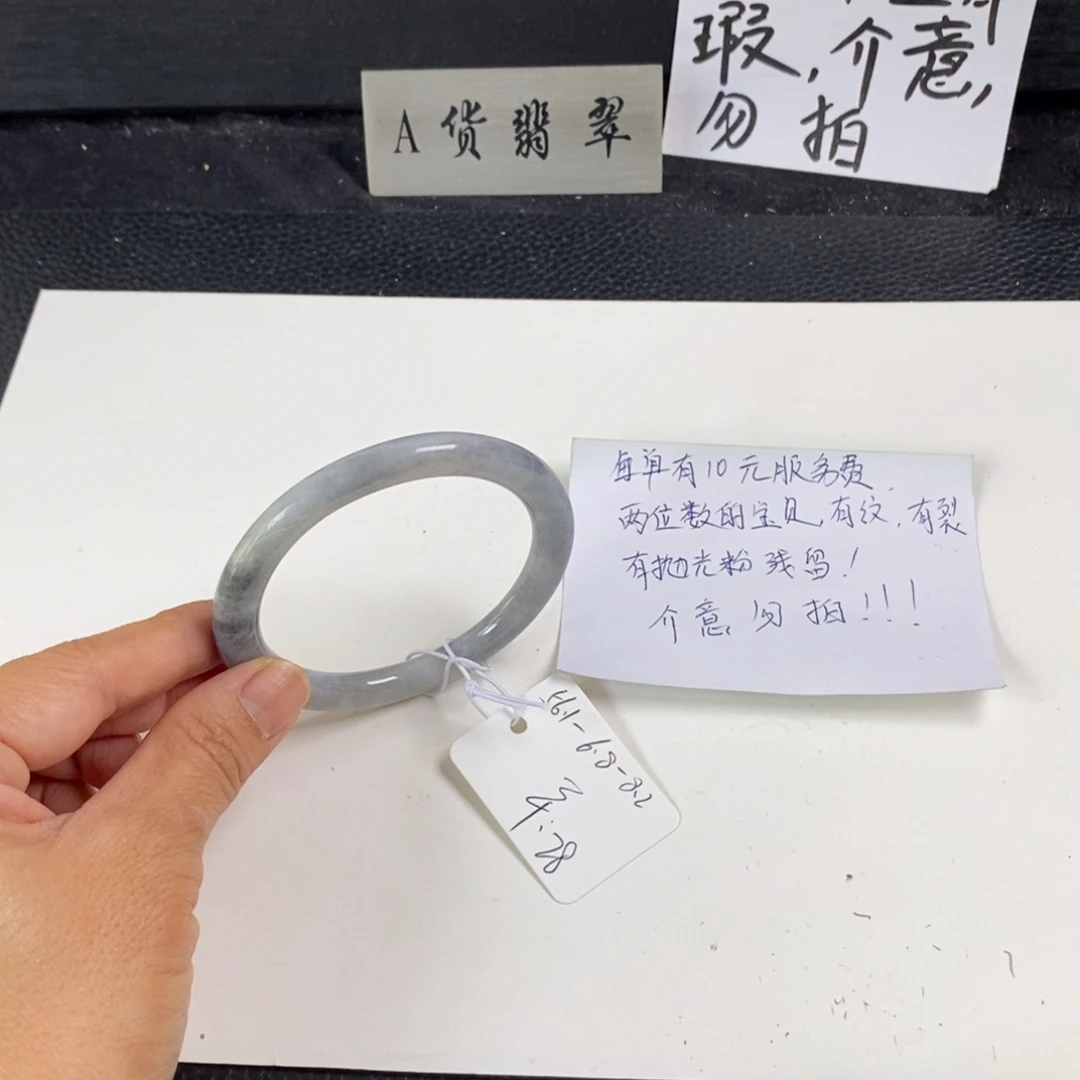 瑕,介意,
勿 拍
A 货 翡 翠
每单有10元服务费
两位数的宝贝,有纹,有裂
有抛光粉残留!
介意勿拍!!!
56.1-6.8-8.2